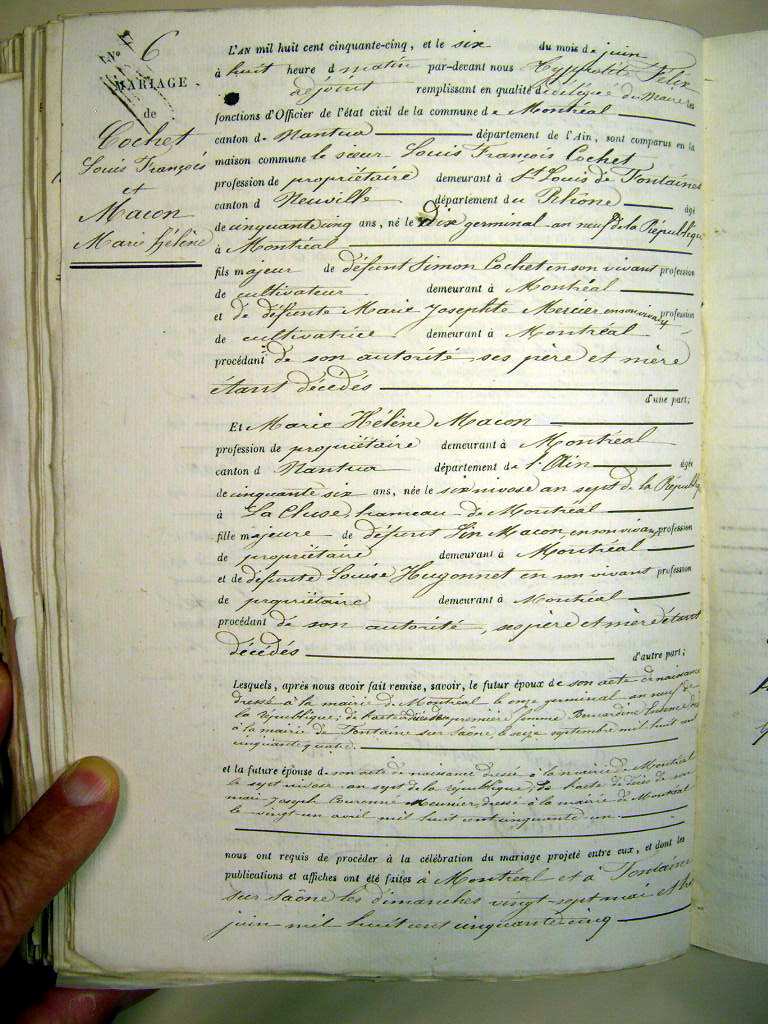 N.º 6
MARIAGE
de
Cochet
Louis François
et
Macon
Marie Hélène
L'AN mil huit cent cinquante-cinq, et le six du mois de juin
à huit heure du matin par-devant nous Hyppolite Felix
adjoint remplissant en qualité de délégué du Maire les
fonctions d'Officier de l'état civil de la commune de Montréal
canton de Nantua département de l'Ain, sont comparus en la
maison commune le sieur Louis François Cochet
profession de propriétaire demeurant à St Louis de Fontaines
canton d Neuville département du Rhône âgé
de cinquante cinq ans, né le dix germinal an neuf de la République
à Montréal
fils majeur de défunt Simon Cochet en son vivant profession
de cultivateur demeurant à Montréal
et de défunte Marie Josephte Mercier en son vivant profession
de cultivatrice demeurant à Montréal
procédant de son autorité, ses père et mère
étant décédés
d'une part;
Et Marie Hélène Macon
profession de propriétaire demeurant à Montréal
canton d Nantua département de l'Ain âgée
de cinquante six ans, née le six nivose an sept de la République
à La Cluse, hameau de Montréal
fille majeure de défunt Macon, en son vivant profession
de propriétaire demeurant à Montréal
et de défunte Louise Hugonnet en son vivant profession
de propriétaire demeurant à Montréal
procédant de son autorité, ses père et mère étant
décédés
d'autre part;
Lesquels, après nous avoir fait remise, savoir, le futur époux de son acte de naissance
dressé à la mairie de Montréal le onze germinal an neuf de
la République; de l'acte de décès de sa première femme Bernardine
à la mairie de Fontaine sur Saône, le seize septembre mil huit cent
cinquante quatre.
et la future épouse d son acte de naissance dressé à la mairie de Montréal
le sept nivose an sept de la République, de l'acte de décès de son
mari Joseph Couronné Meunier, dressé à la mairie de Montréal
le vingt un avril mil huit cent cinquante un.
nous ont requis de procéder à la célébration du mariage projeté entre eux, et dont les
publications et affiches ont été faites à Montréal et à Fontaines
sur Saône les dimanches vingt-sept mai et
juin mil huit cent cinquante cinq